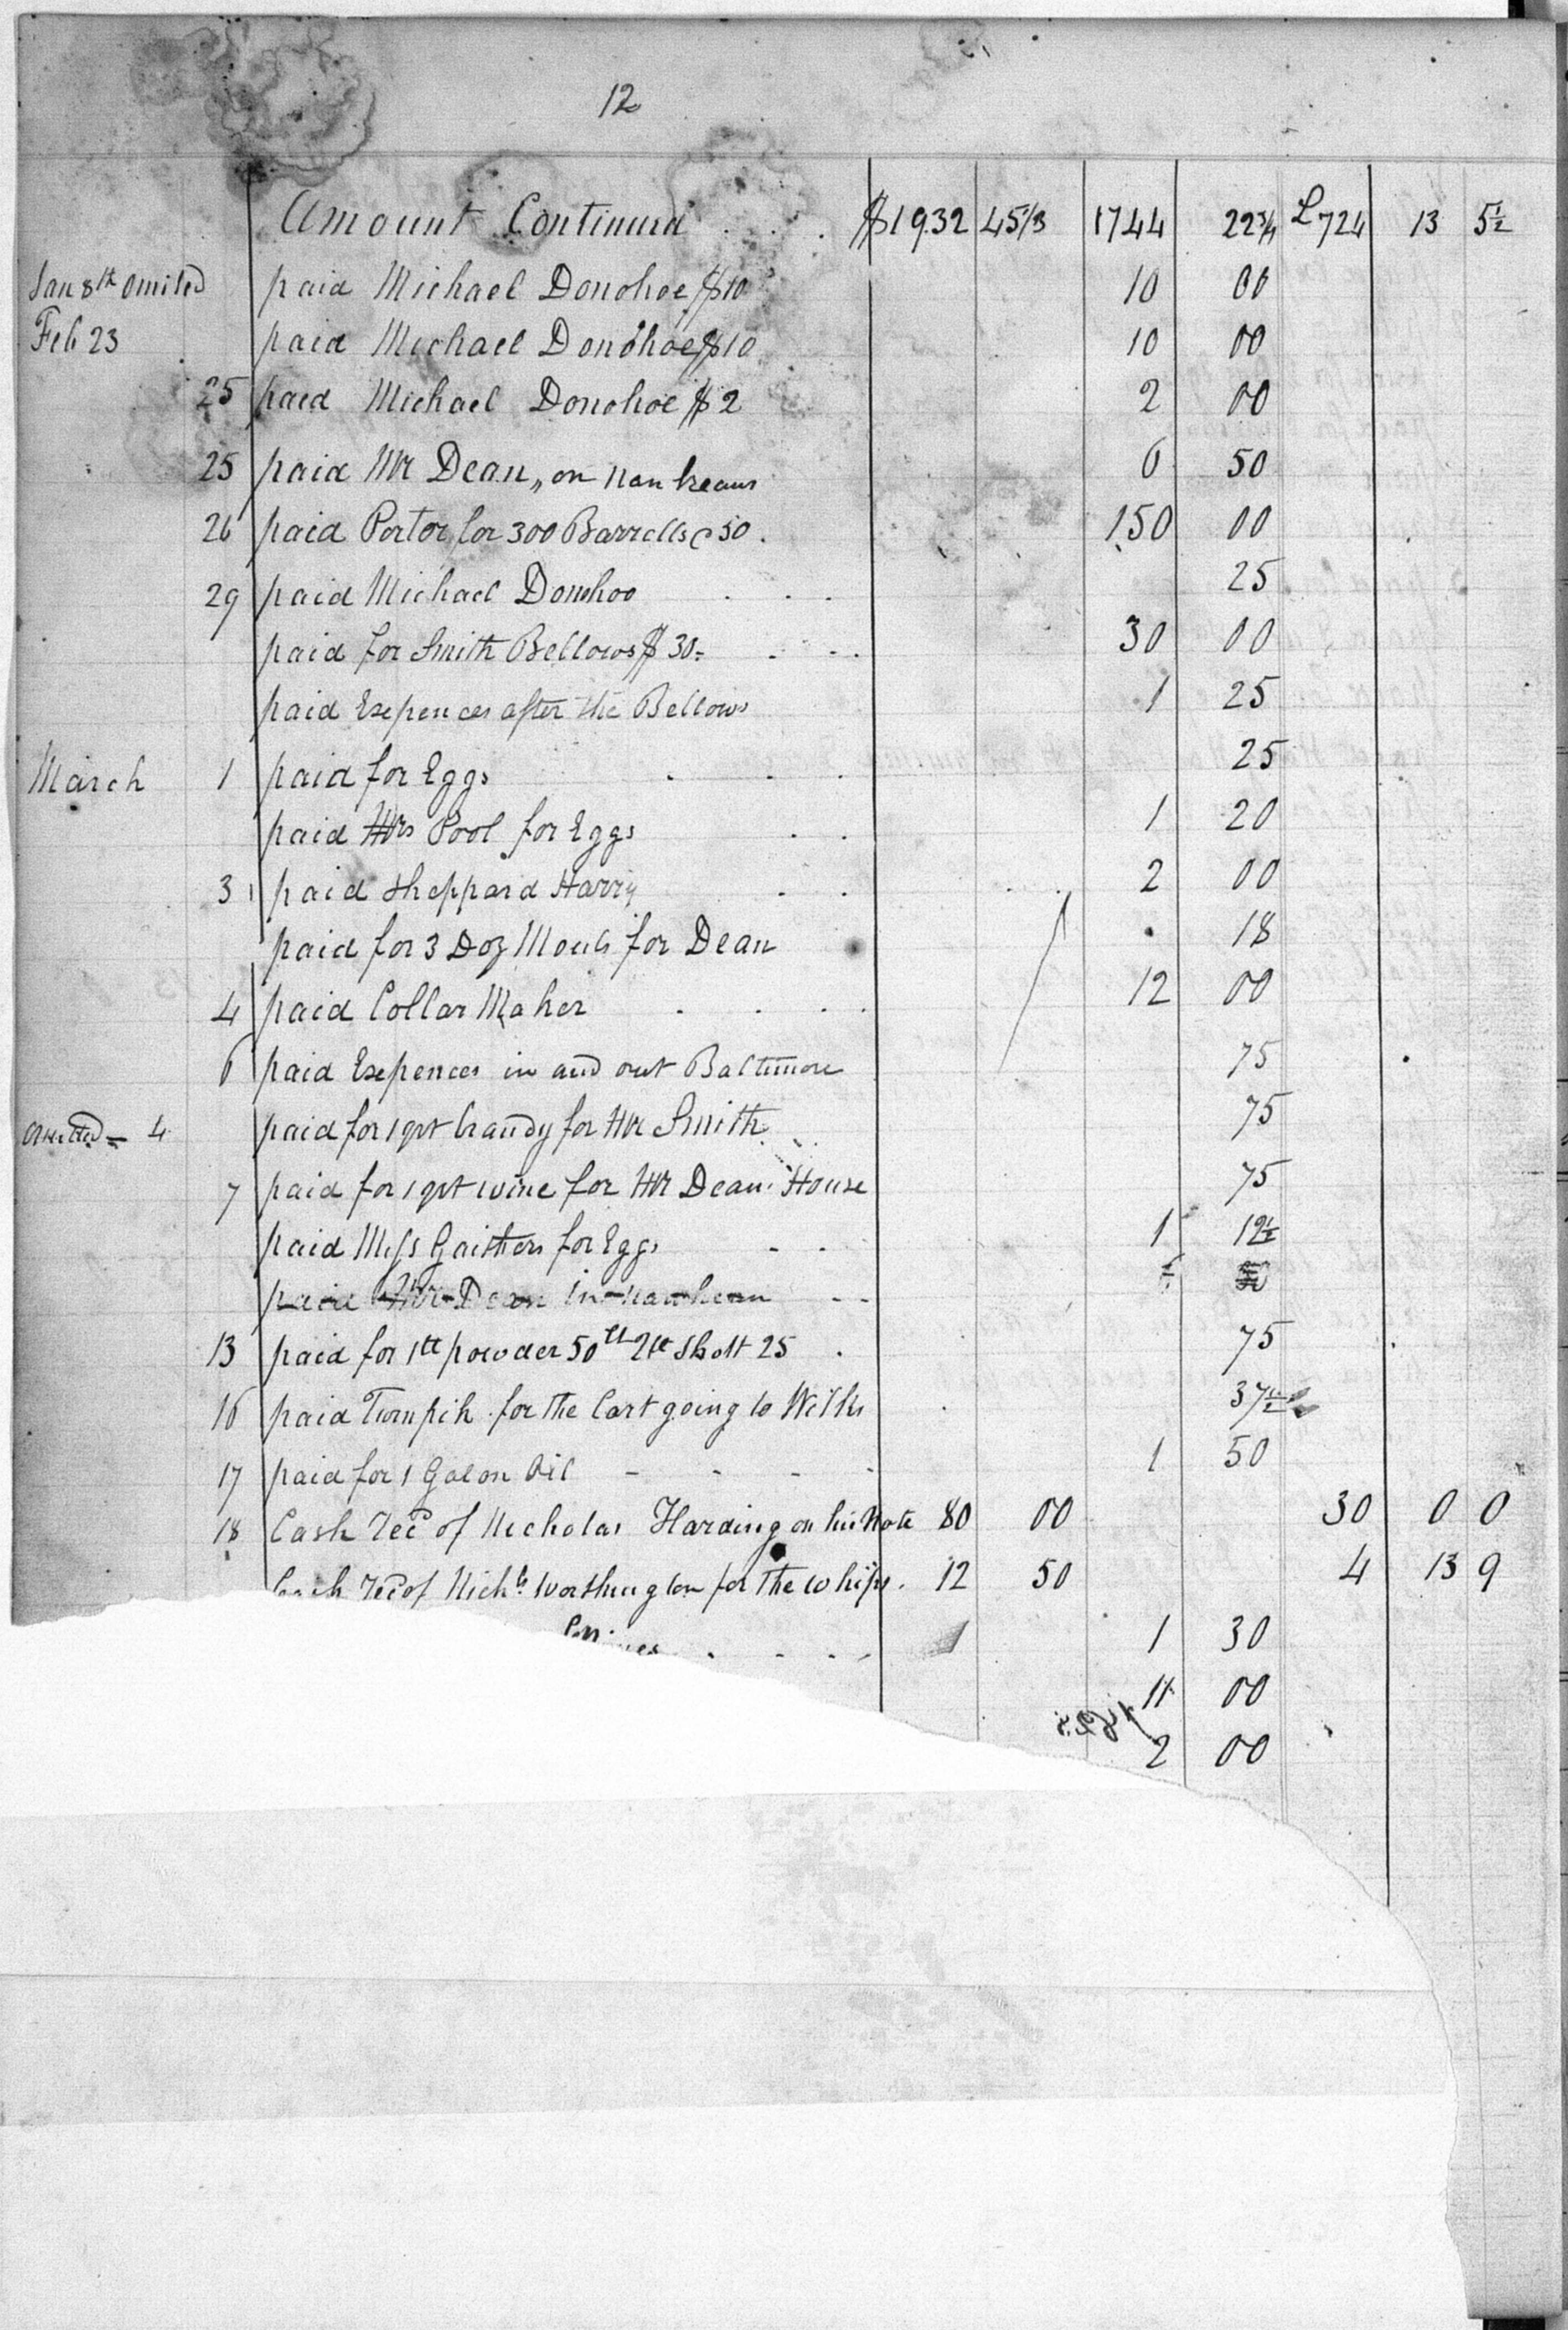 12
Amount Continued . . . $1932 45 1/3 1744 22 3/4 £724 13 5 1/2
Jan 8th Omited paid Michael Donohoe $10 10 00
Feb 23 paid Michael Donohoe $10 10 00
25 paid Michael Donohoe $2 2 00
25 paid Mr Dean, on 6 50
26 paid Porter for 300 Barrells @ 50. 150 00
29 paid Michael Donohoo . . . 25
paid for Smith Bellows $30= . . . 30 00
paid Expences after the Bellows 1 25
March 1 paid for Eggs . . . 25
paid Mrs Pool for Eggs . . 1 20
3 paid Sheppard Harry . . 2 00
paid for 3 Doz for Dean 18
4 paid Collar Maker . . . . 12 00
6 paid Expences in and out Baltimore 75
Omitted = 4 paid for 1 qrt brandy for Mr Smith 75
7 paid for 1 qrt wine for Mr Dean House 75
paid Miss Gaithers for Eggs - - 1 12 1/2
paid Mr Dean - -
13 paid for 1 tt powder 50 ct 2 tt Shott 25 . 75
16 paid Turnpik for the Cart going to 37 1/2
17 paid for 1 Galon Oil - - - - 1 50
18 Cash Recd of Nicholas Harding on his Note 80 00 30 0 0
Cash Recd of Nichs Worthington for the Whips . 12 50 4 13 9
. - . - 1 30
11 00
2 00